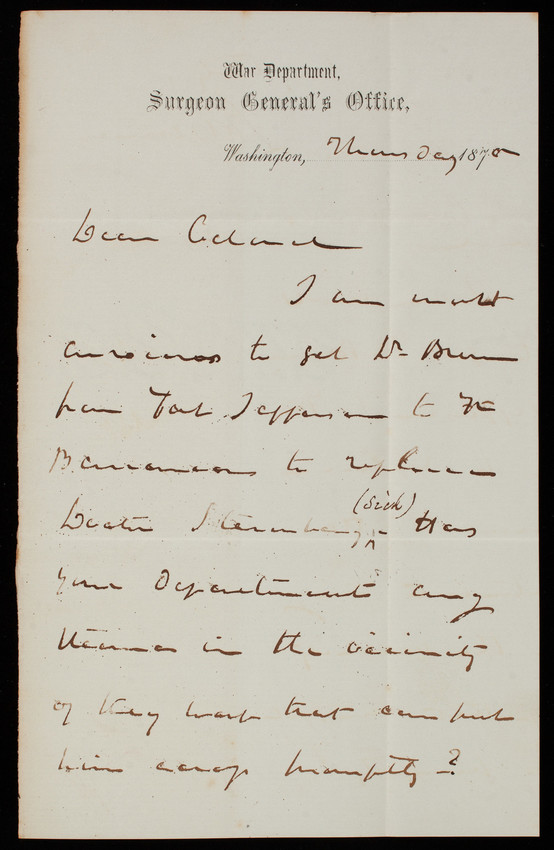 War Department,
Surgeon General's Office,
Washington, Thursday 1875
Dear Colonel
I am most
anxious to get Dr Brown
from Fort Jefferson to Ft
Barrancas to replace
(sick)
Doctor Sternberg. Has
your Department any
steamer in the vicinity
of Key West that can put
him across promptly?